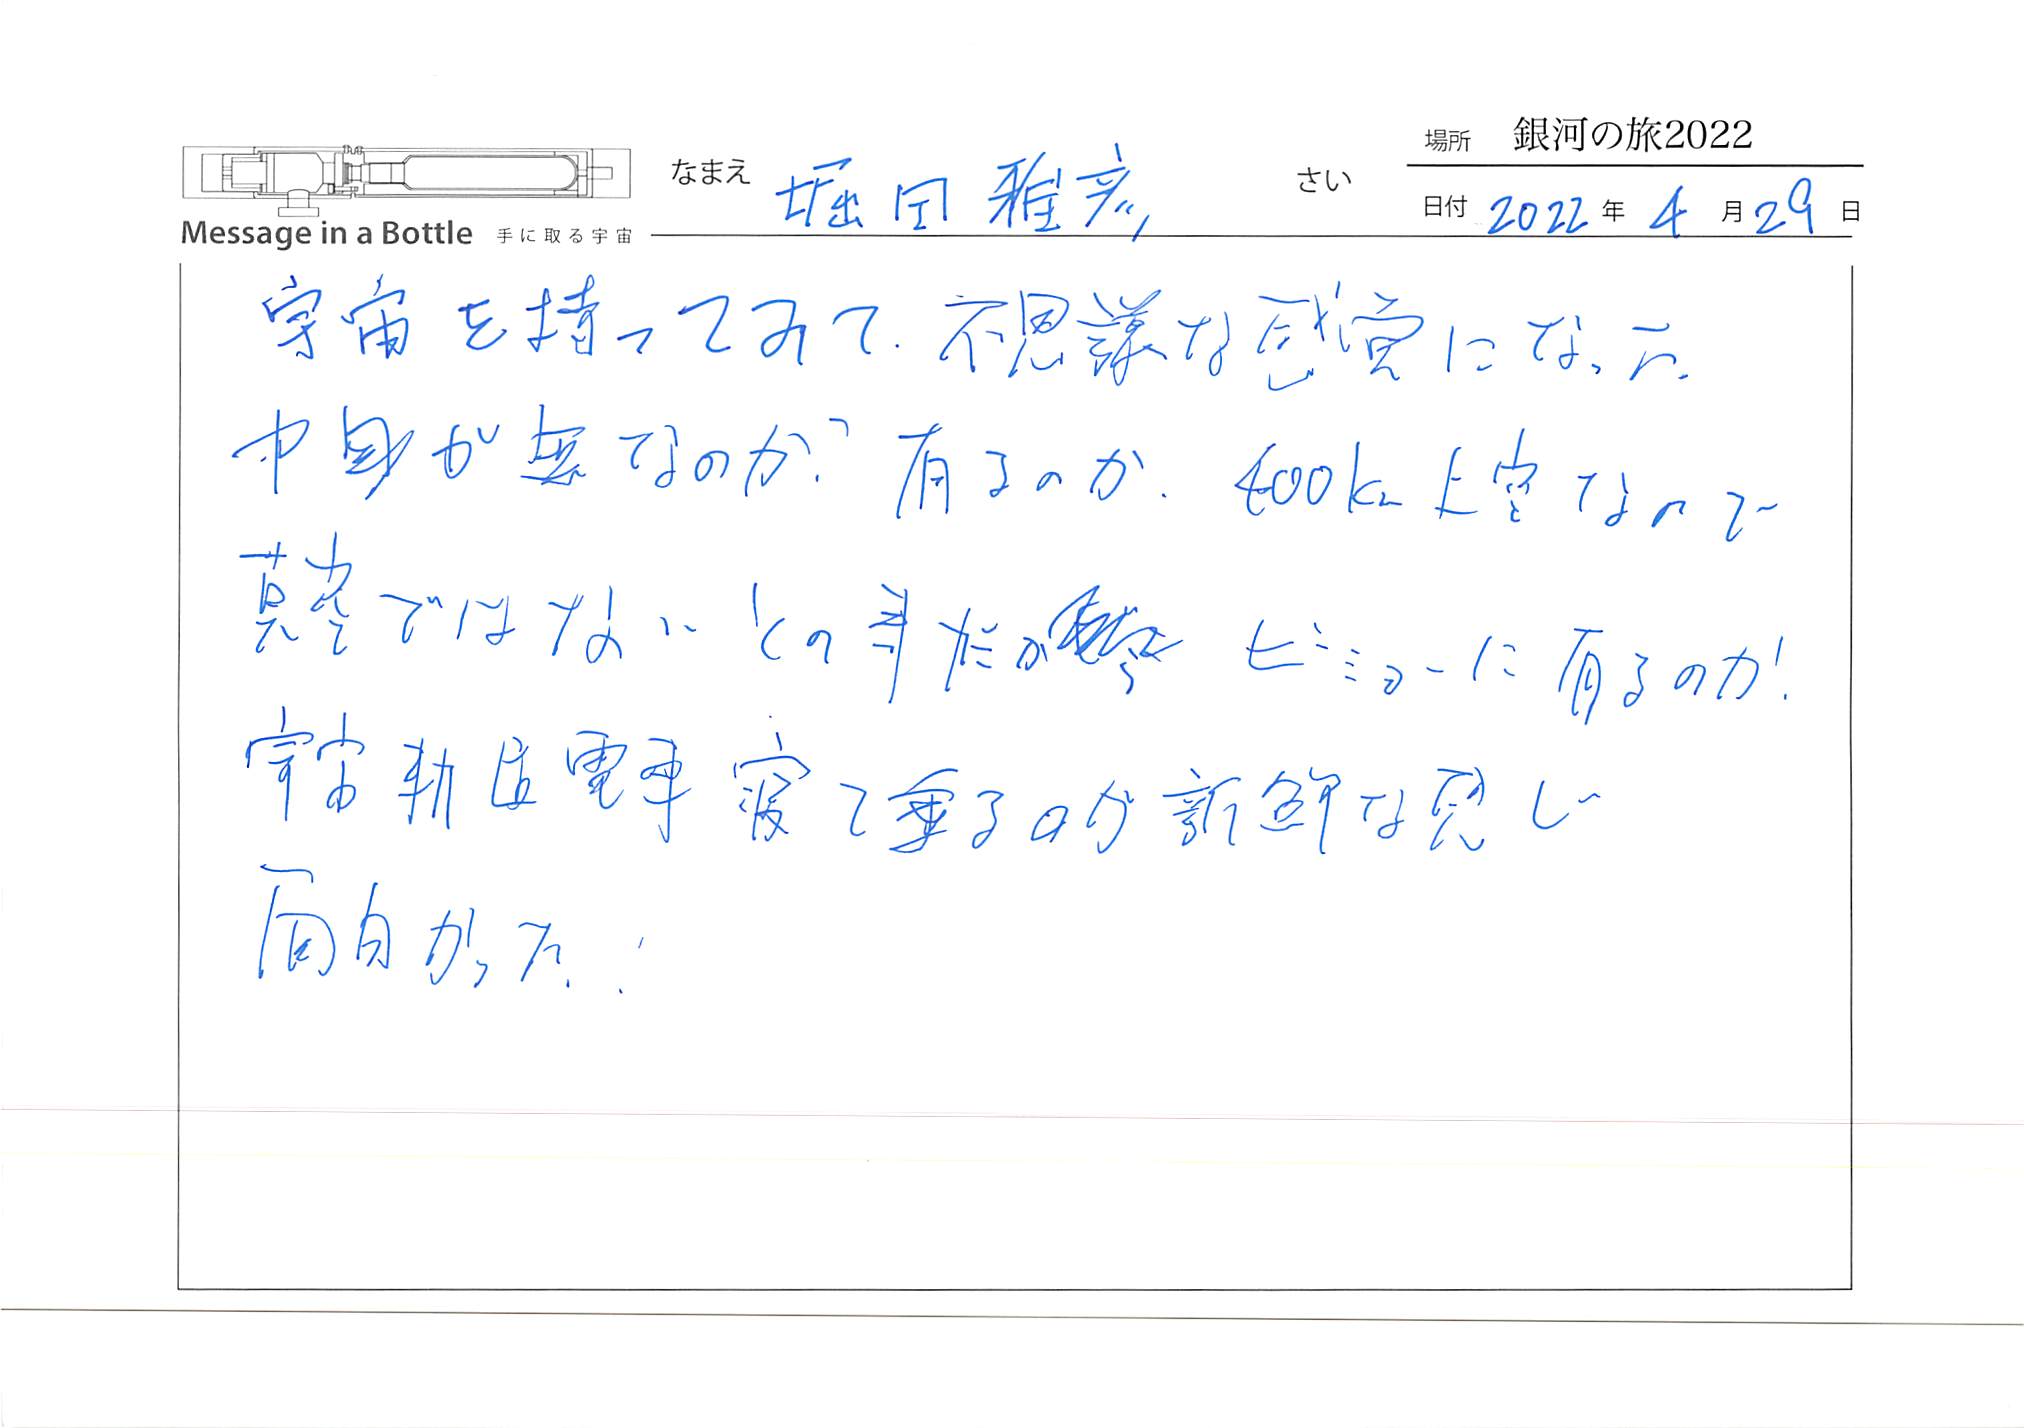 場所 銀河の旅2022
なまえ 堀田雅彦 さい
日付 2022年4月29日
Message in a Bottle 手に取る宇宙
宇宙を持ってみて、不思議な感覚になった。
中身が無なのか?有るのか。400km上空なので
真空ではないとの事だが ビミョーに有るのか!
宇宙軌道電車寝て乗るのが新鮮な感じ
面白かった!